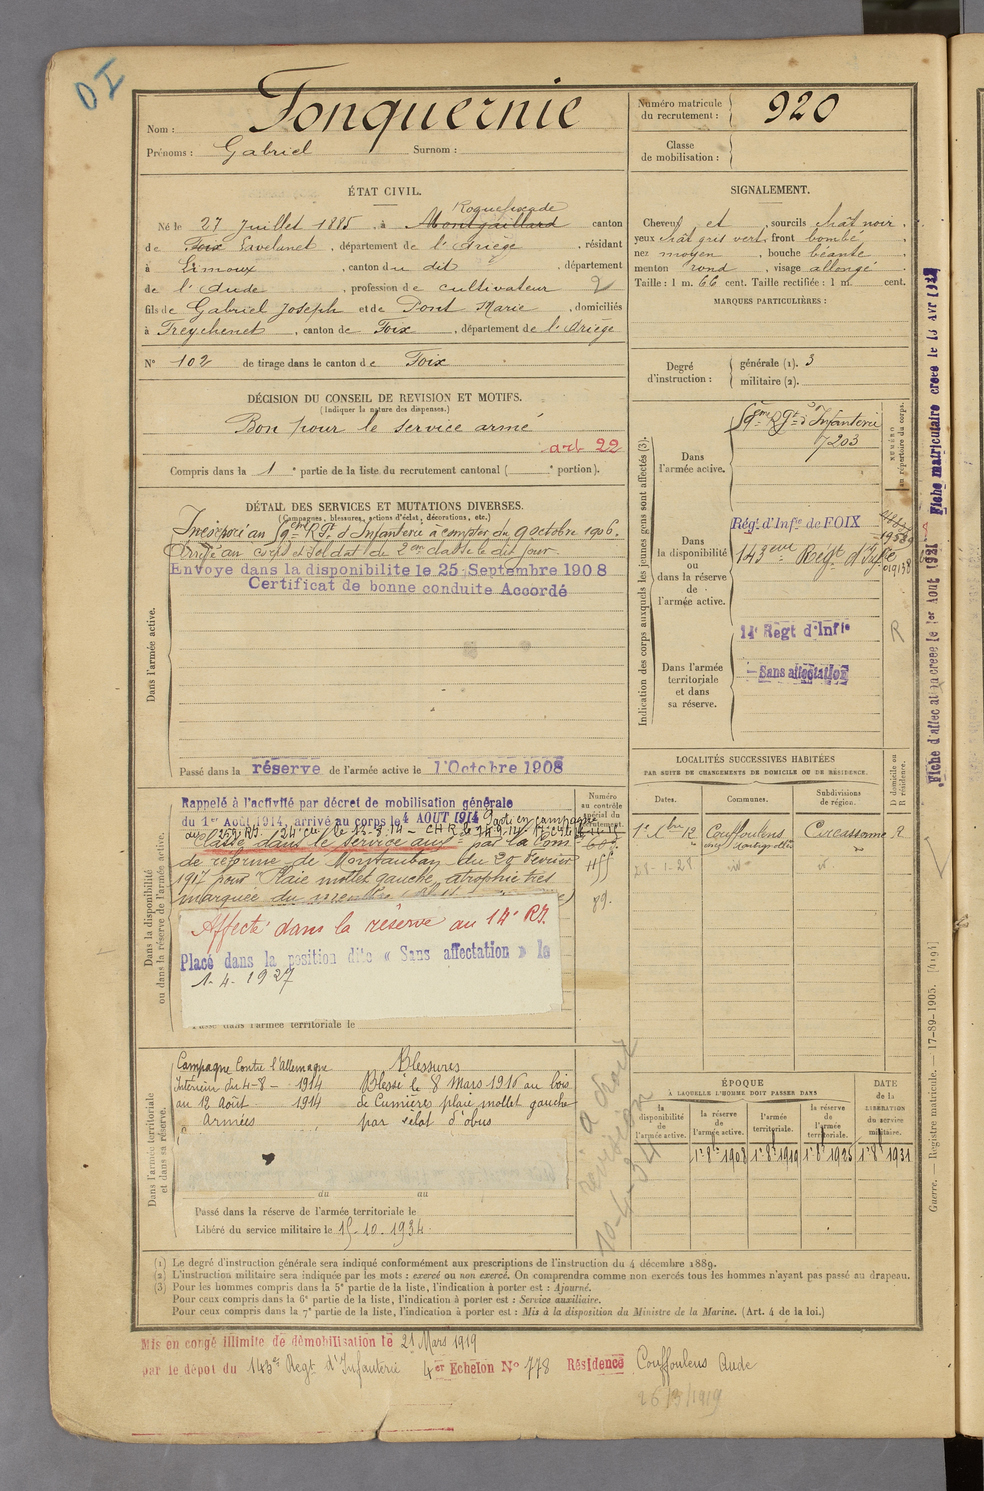 DI
Nom : Fonquernie
Prénoms : Gabriel Surnom :
Numéro matricule du recrutement : 920
Classe de mobilisation :
ÉTAT CIVIL.
Roquefixade
Né le 27 Juillet 1885, à Montgaillard canton
de Foix Lavelanet, département de l'Ariège, résidant
à Limoux, canton du dit, département
de l'Aude, profession de cultivateur 2
fils de Gabriel Joseph et de Pont Marie, domiciliés
à Freychenet, canton de Foix, département de l'Ariège
N° 102 de tirage dans le canton de Foix
SIGNALEMENT.
Cheveux et sourcils chât noir,
yeux chât gris vert, front bombé,
nez moyen, bouche béante,
menton rond, visage allongé.
Taille : 1 m. 66 cent. Taille rectifiée : 1 m. cent.
MARQUES PARTICULIÈRES :
Degré d'instruction : générale (1). 3
militaire (2).
DÉCISION DU CONSEIL DE REVISION ET MOTIFS.
(Indiquer la nature des dispenses.)
Bon pour le service armé
art 22
Compris dans la 1e partie de la liste du recrutement cantonal ( e portion).
DÉTAIL DES SERVICES ET MUTATIONS DIVERSES.
(Campagnes, blessures, actions d'éclat, décorations, etc.)
Dans l'armée active.
Incorporé au 59eme Rgt d'Infanterie à compter du 9 octobre 1906.
Arrivé au corps et soldat de 2me classe le dit jour.
Envoyé dans la disponibilité le 25 Septembre 1908
Certificat de bonne conduite Accordé
Passé dans la réserve de l'armée active le 1 Octobre 1908
Indication des corps auxquels les jeunes gens sont affectés (3).
NUMÉRO au répertoire du corps.
Dans l'armée active.
59me Rgt d'Infanterie
7203
Dans la disponibilité ou dans la réserve de l'armée active.
Rég. d'Infie de FOIX
143eme Regt d'Inf
Dans l'armée territoriale et dans sa réserve.
14e Regt d'Infie
R
Sans affectation
Dans la disponibilité ou dans la réserve de l'armée active.
Numéro au contrôle spécial du recrutement.
Rappelé à l'activité par décret de mobilisation générale
du 1er Août 1914, arrivé au corps le 4 AOUT 1914 Parti en campagne
Classé dans le service aux. par la Com.
de réforme de Montauban du 20 février
1917 pour "Plaie mollet gauche, atrophie très
marquée du
89.
Affecté dans la réserve au 14e RI.
Placé dans la position dite « Sans affectation » le
1-4-1927
Passé dans l'armée territoriale le
LOCALITÉS SUCCESSIVES HABITÉES
PAR SUITE DE CHANGEMENTS DE DOMICILE OU DE RÉSIDENCE.
D domicile ou R résidence.
Dates. Communes. Subdivisions de région.
1er 8bre 12 Couffoulens Carcassonne R
28-1-28
Dans l'armée territoriale et dans sa réserve.
Campagne Contre l'Allemagne
Intérieur du 4-8- 1914
au 12 Août 1914
Armées
Blessures
Blessé le 8 Mars 1916 au bois
de Cumière plaie mollet gauche
par éclat d'obus
du au
Passé dans la réserve de l'armée territoriale le
Libéré du service militaire le 15.10.1934.
ÉPOQUE
À LAQUELLE L'HOMME DOIT PASSER DANS
la disponibilité de l'armée active.
la réserve de l'armée active.
l'armée territoriale.
la réserve de l'armée territoriale.
DATE de la LIBÉRATION du service militaire.
1er 8bre 1908 1er 8bre 1919 1er 8bre 1925 1er 8bre 1931
(1) Le degré d'instruction générale sera indiqué conformément aux prescriptions de l'instruction du 4 décembre 1889.
(2) L'instruction militaire sera indiquée par les mots : exercé ou non exercé. On comprendra comme non exercés tous les hommes n'ayant pas passé au drapeau.
(3) Pour les hommes compris dans la 5e partie de la liste, l'indication à porter est : Ajourné.
Pour ceux compris dans la 6e partie de la liste, l'indication à porter est : Service auxiliaire.
Pour ceux compris dans la 7e partie de la liste, l'indication à porter est : Mis à la disposition du Ministre de la Marine. (Art. 4 de la loi.)
Mis en congé illimité de démobilisation le 21 Mars 1919
par le dépôt du 143e Regt d'Infanterie 4er Echelon N° 778 Résidence Couffoulens Aude
26/3/1919
Guerre. — Registre matricule. — 17-89-1905. [4194]
Fiche d'affectation créée le 1er Août 1931
Fiche matriculaire créée le 13 Avr